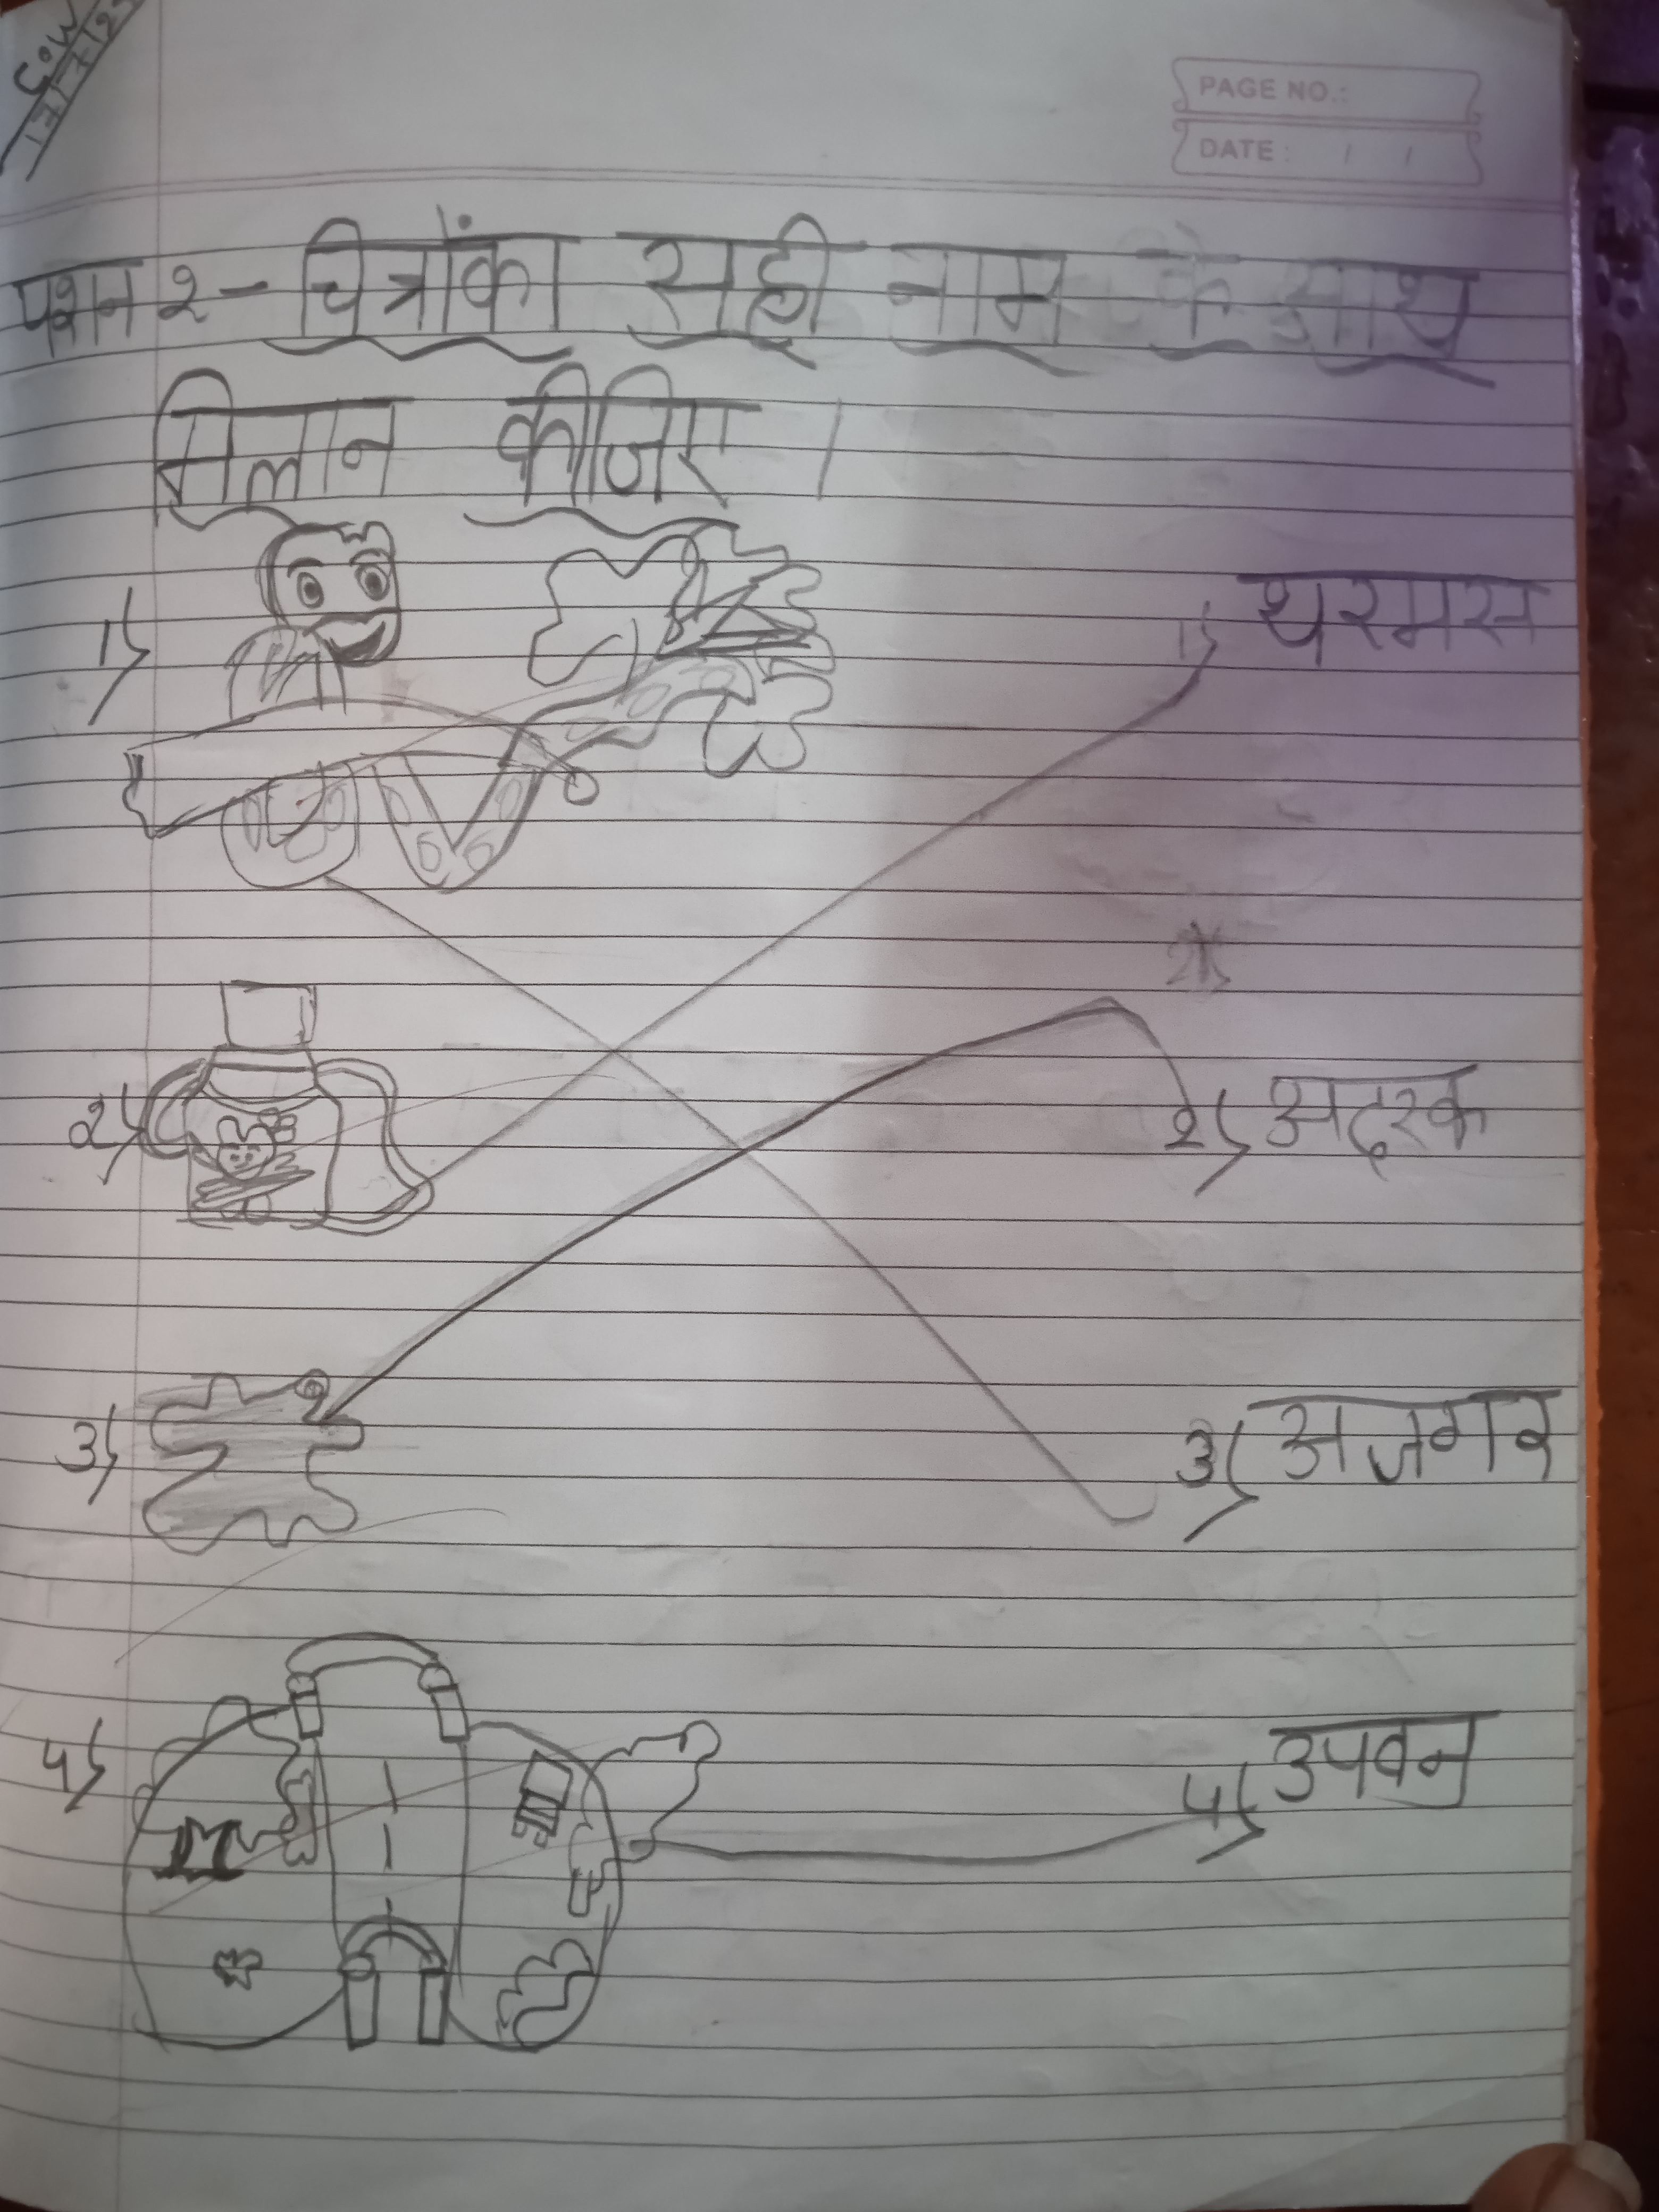 C.W
17/7/25
PAGE NO.:
DATE: / /
प्रश्न २ - चित्रोंका सही नाम के साथ
मिलान कीजिए ।
1) 1) थरमस
2) 2) अदरक
3) 3) अजगर
4) 4) उपवन